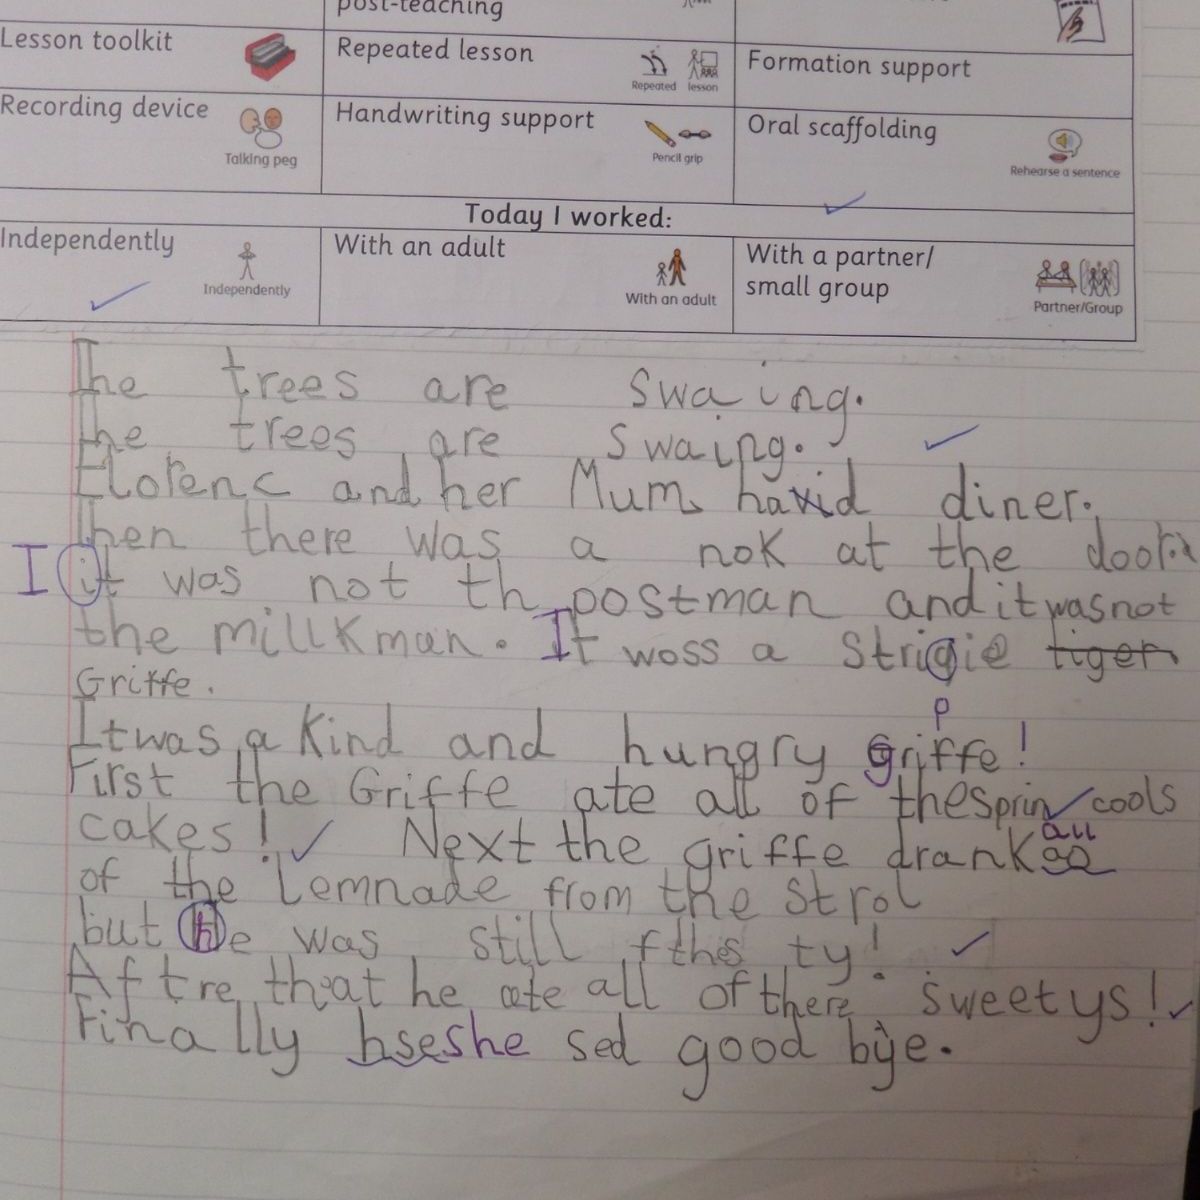 post-teaching
Lesson toolkit
Repeated lesson
Repeated lesson
Formation support
Recording device
Talking peg
Handwriting support
Pencil grip
Oral scaffolding
Rehearse a sentence
Today I worked:
Independently
Independently
With an adult
With an adult
With a partner/
small group
Partner/Group
The trees are swaing.
The trees are swaing.
Florenc and her Mum had diner.
Then there was a nok at the door.
I it was not th postman and it was not
the millkman. It woss a strigie tiger
Griffe.
p
It was a kind and hungry griffe!
First the Griffe ate all of the sprin cools
cakes! Next the griffe drank all
of the lemnade from the strol
but he was still fthes ty!
Aftre that he ate all of there sweetys!
Finally she sed good bye.